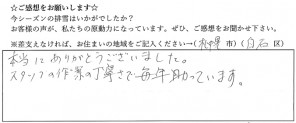 ☆ご感想をお願いします☆
今シーズンの排雪はいかがでしたか？
お客様の声が、私たちの原動力になっています。ぜひ、ご感想をお聞かせ下さい。
※差支えなければ、お住まいの地域をご記入ください→(札幌 市)(白石 区)
本当にありがとうございました。
スタッフの作業の丁寧さで毎年助っています。